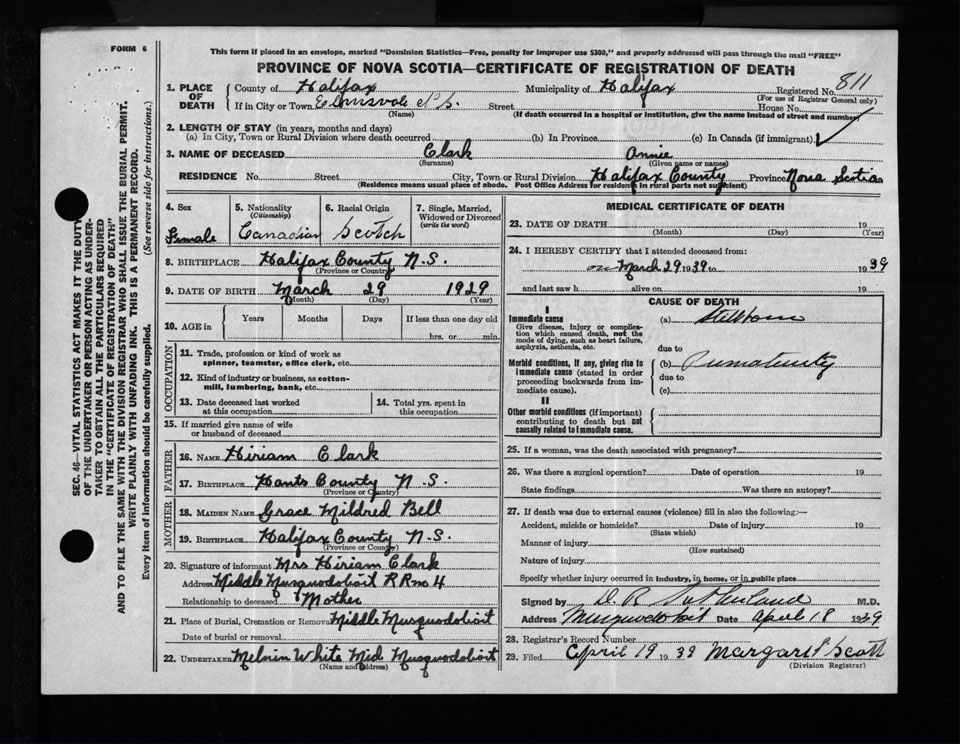 FORM 6
This form if placed in an envelope, marked "Dominion Statistics—Free, penalty for improper use $300," and properly addressed will pass through the mail "FREE"
PROVINCE OF NOVA SCOTIA—CERTIFICATE OF REGISTRATION OF DEATH
1. PLACE OF DEATH County of Halifax Municipality of Halifax Registered No. 811
(For use of Registrar General only)
If in City or Town Elmsvale N.S. Street House No.
(Name) (If death occurred in a hospital or institution, give the name instead of street and number)
2. LENGTH OF STAY (in years, months and days)
(a) In City, Town or Rural Division where death occurred (b) In Province (c) In Canada (if immigrant)
3. NAME OF DECEASED Clark Annie
(Surname) (Given name or names)
RESIDENCE No. Street City, Town or Rural Division Halifax County Province Nova Scotia
(Residence means usual place of abode. Post Office Address for residents in rural parts not sufficient)
4. Sex Female
5. Nationality (Citizenship) Canadian
6. Racial Origin Scotch
7. Single, Married, Widowed or Divorced (write the word)
8. BIRTHPLACE Halifax County N.S.
(Province or Country)
9. DATE OF BIRTH March 29 1929
(Month) (Day) (Year)
10. AGE in Years Months Days If less than one day old
hrs. or min.
OCCUPATION
11. Trade, profession or kind of work as spinner, teamster, office clerk, etc.
12. Kind of industry or business, as cotton-mill, lumbering, bank, etc.
13. Date deceased last worked at this occupation
14. Total yrs. spent in this occupation
15. If married give name of wife or husband of deceased
FATHER
16. NAME Hiriam Clark
17. BIRTHPLACE Hants County N.S.
(Province or Country)
MOTHER
18. MAIDEN NAME Grace Mildred Bell
19. BIRTHPLACE Halifax County N.S.
(Province or Country)
20. Signature of informant Mrs Hiriam Clark
Address Middle Musquodoboit R R no 4
Relationship to deceased Mother
21. Place of Burial, Cremation or Removal Middle Musquodoboit
Date of burial or removal
22. UNDERTAKER Melvin White Mid Musquodoboit
(Name and address)
MEDICAL CERTIFICATE OF DEATH
23. DATE OF DEATH 19
(Month) (Day) (Year)
24. I HEREBY CERTIFY that I attended deceased from:
on March 29 1939 to 1939
and last saw h alive on 19
CAUSE OF DEATH
I
Immediate cause (a) Stillborn
Give disease, injury or complication which caused death, not the mode of dying, such as heart failure, asphyxia, asthenia, etc.
due to
Morbid conditions, if any, giving rise to immediate cause (stated in order proceeding backwards from immediate cause).
(b) Prematurity
due to
(c)
II
Other morbid conditions (if important) contributing to death but not causally related to immediate cause.
25. If a woman, was the death associated with pregnancy?
26. Was there a surgical operation? Date of operation 19
State findings Was there an autopsy?
27. If death was due to external causes (violence) fill in also the following:—
Accident, suicide or homicide? Date of injury 19
(State which)
Manner of injury
(How sustained)
Nature of injury
Specify whether injury occurred in industry, in home, or in public place
Signed by D. R. Sutherland M.D.
Address Musquodoboit Date April 18 1939
28. Registrar's Record Number
29. Filed April 19 1939 Margaret Scott
(Division Registrar)
SEC. 46—VITAL STATISTICS ACT MAKES IT THE DUTY
OF THE UNDERTAKER OR PERSON ACTING AS UNDER-
TAKER TO OBTAIN ALL THE PARTICULARS REQUIRED
IN THE "CERTIFICATE OF REGISTRATION OF DEATH"
AND TO FILE THE SAME WITH THE DIVISION REGISTRAR WHO SHALL ISSUE THE BURIAL PERMIT.
WRITE PLAINLY WITH UNFADING INK. THIS IS A PERMANENT RECORD.
Every item of information should be carefully supplied. (See reverse side for instructions.)